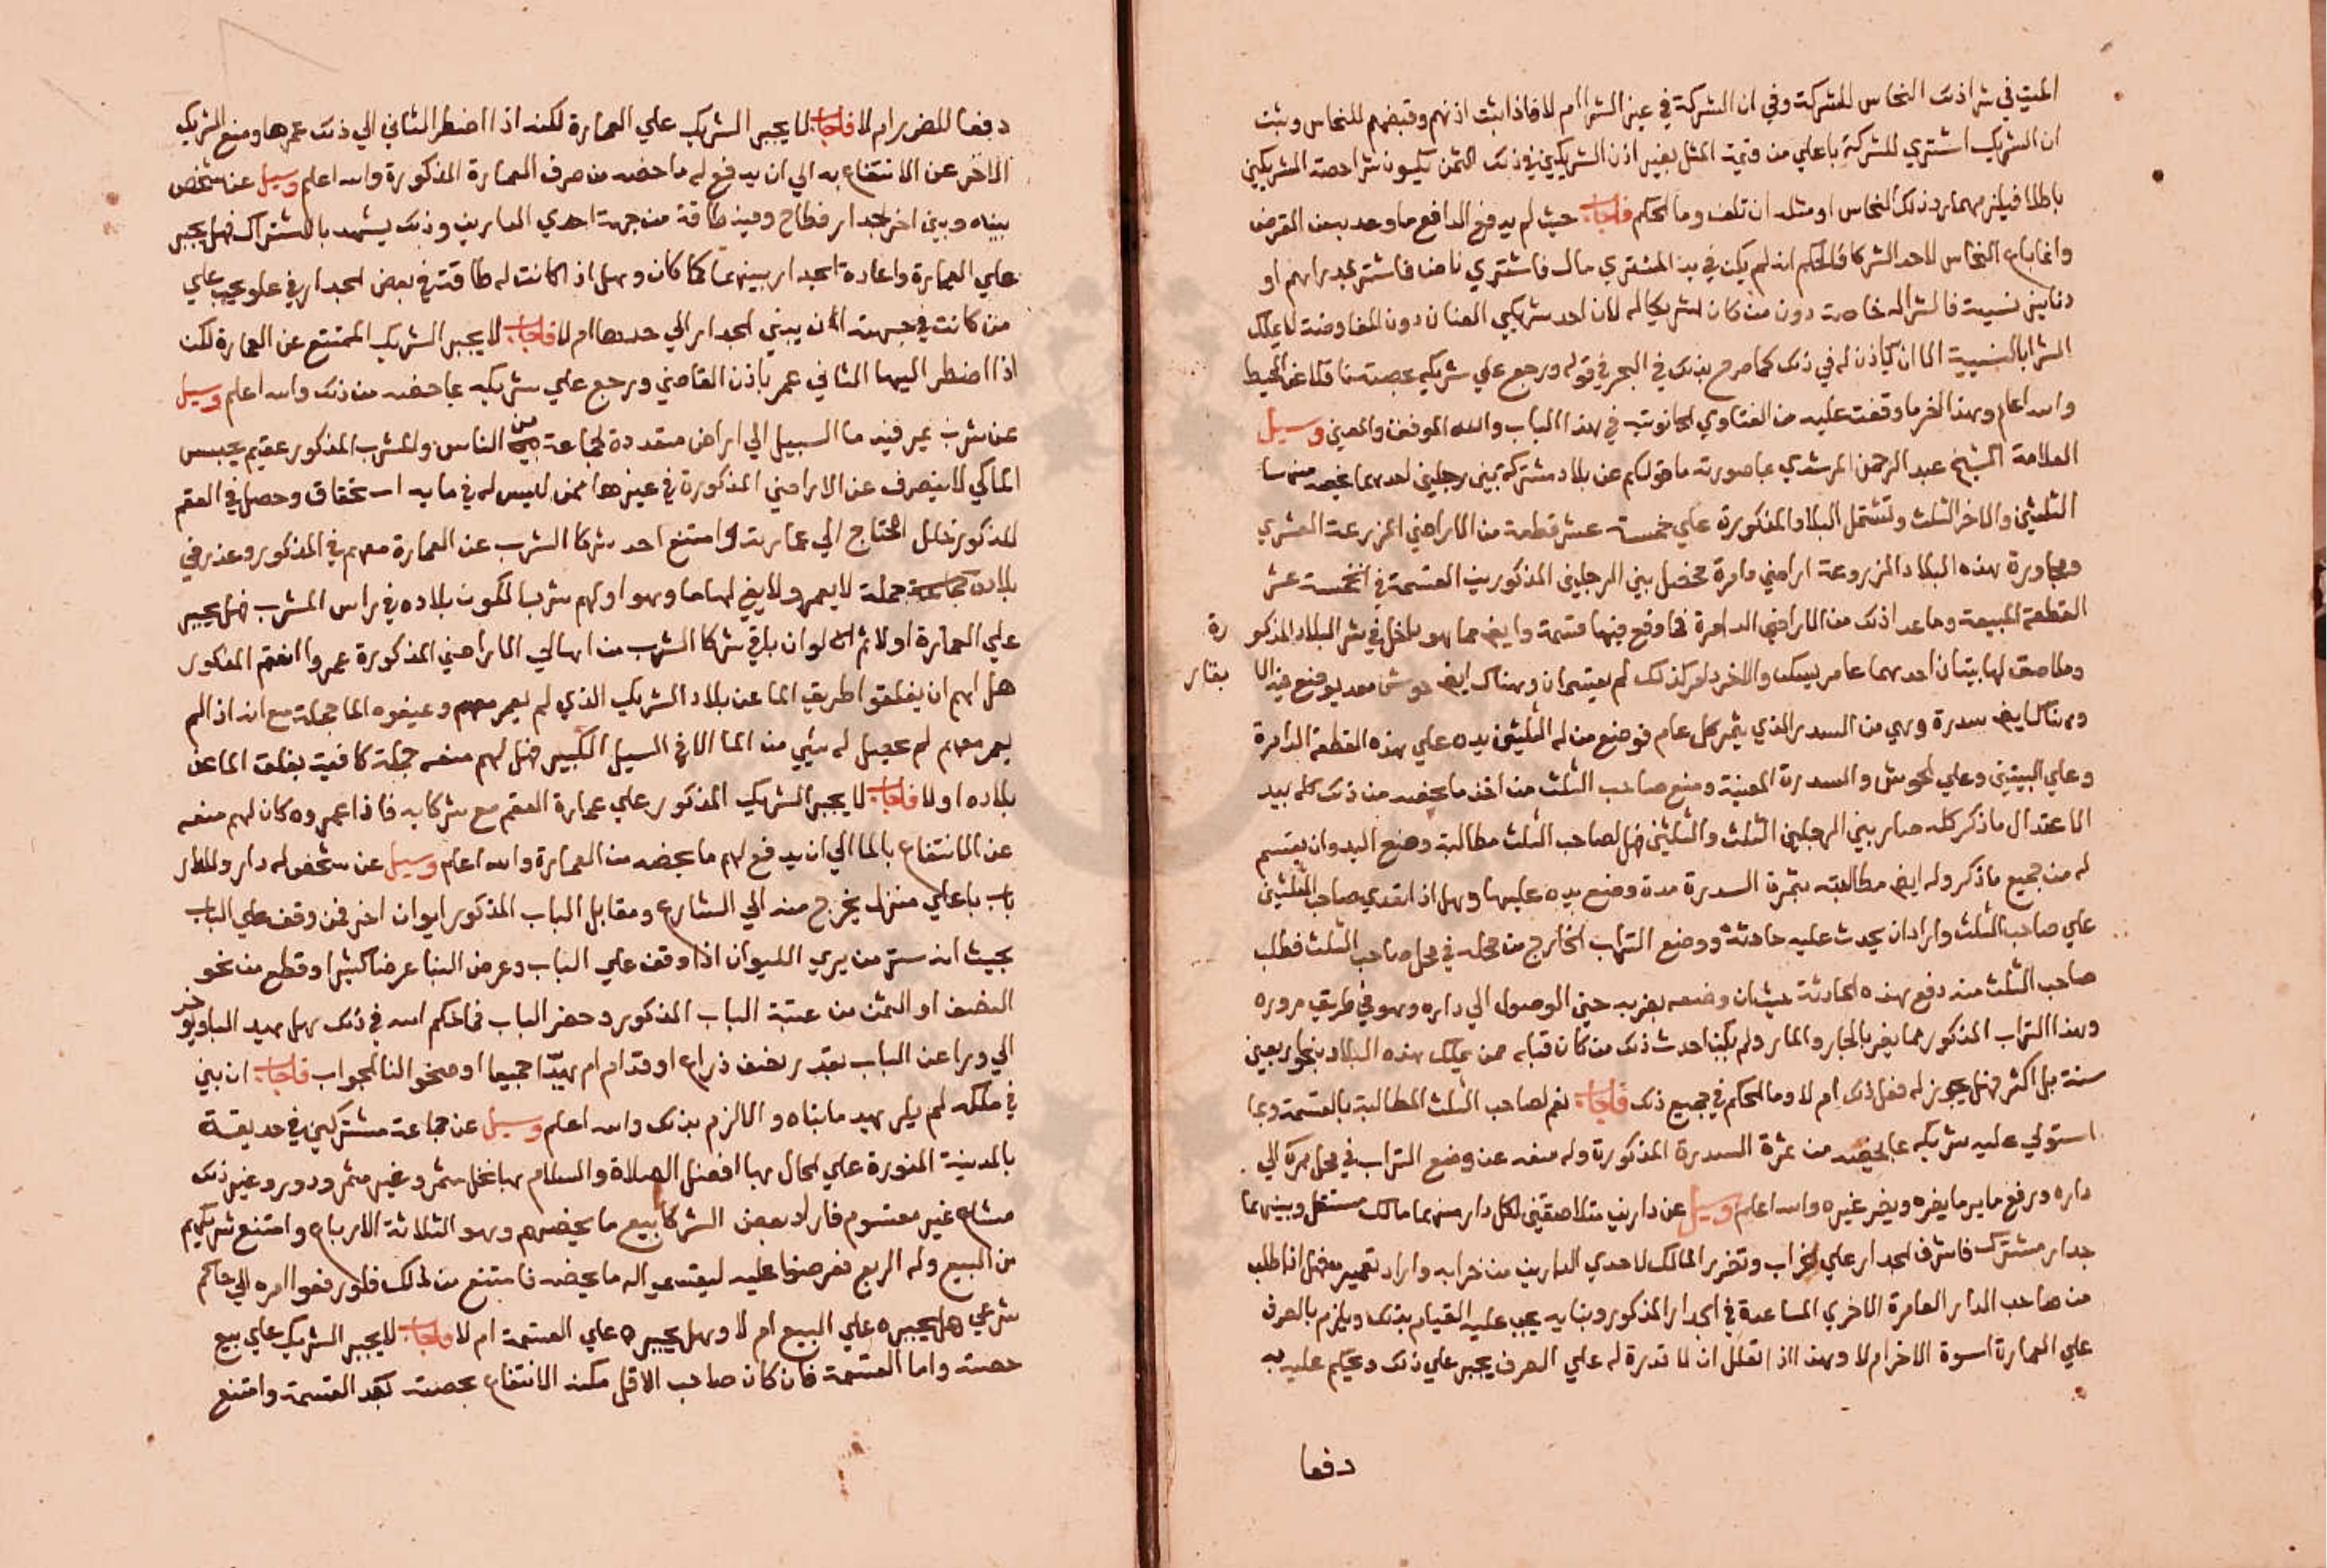 الميت في شراذلك النحاس للشركة وفي ان الشركة في عين الشراام لا فاذا ثبت اذنهم وقبضهم للنحاس وثبت
ان الشريك اشتري للشركة باعلي من قيمة المثل بغير اذن الشريكين في ذلك الثمن يكون شراحصة الشريكين
باطلا فيلزمهما رد ذلك النحاس او مثله ان تلف وما الحكم فاجاب حيث لم يدفع الدافع ما وعد بعد القرض
وانما باع النحاس لاحد الشركا فالحكم انه لم يكن في يد المشتري مال فاشتري ناضا فاشتري بدراهم او
دنانير نسية فالشرا له خاصة دون من كان شريكا له لان احد شريكي العنان دون المفاوضة لا يملك
الشرا بالنسية الا ان ياذن له في ذلك كما صرح بذلك في البحر في قوله ورجع علي شريكه بحصته ناقلا عن المحيط
والله اعلم وهذا اخر ما وقفت عليه من الفتاوي الحانوتية في هذا الباب والله الموفق والمعين وسيل
العلامة الشيخ عبد الرحمن المرشدي بما صورته ما قولكم عن بلاد مشتركة بين رجلين احدهما يخصه منها
الثلثين والاخر الثلث وتشتمل البلاد المذكورة علي خمسة عشر قطعة من الاراضي المزرعة العشري
ومجاورة هذه البلاد المزروعة اراضي دامرة تحصل بين الرجلين المذكورين القسمة في الخمسة عشر
القطعة المبيعة وما عدا ذلك من الاراضي الدامرة فما وقع فيها قسمة وايض مما هو داخل في شر البلاد المذكورة
وملاصق لها بيتان احدهما عامر يسكن والاخر دامر كذلك لم يقتسمان وهناك ايض حوش معد يوضع فيه الابقار
وهناك ايض سدرة وهي من السدر الذي يثمر كل عام فوضع من له الثلثين يده علي هذه القطعة الدامرة
وعلي البيتين وعلي الحوش والسدرة المعينة ومنع صاحب الثلث من اخذ ما يخصه من ذلك كله بيد
الاعتدال ما ذكر كله صار بين الرجلين الثلث والثلثين فهل لصاحب الثلث مطالبة وضع اليد وان يقتسم
له من جميع ما ذكر وله ايض مطالبته بثمرة السدرة مدة وضع يده عليها وهل اذا تعدي صاحب الثلثين
علي صاحب الثلث واراد ان يحدث عليه حادثة ووضع التراب الخارج من محله في محل صاحب الثلث فطلب
صاحب الثلث منه دفع هذه الحادثة بحيث ان وضعه يضر به حين الوصول الي داره وهو في طريق مروره
وهذا التراب المذكور مما يضر بالجار والمار ولم يكن احدث ذلك من كان قبله ممن يملك هذه البلاد بنحو اربعين
سنة بل اكثر فهل يجوز له فعل ذلك ام لا وما الحكم في جميع ذلك فاجاب نعم لصاحب الثلث المطالبة بالقسمة وبما
استولي عليه شريكه بما يخصه من ثمرة السدرة المذكورة وله منعه عن وضع التراب في محل ممره الي
داره ورفع ما يرما يضره ويضر غيره والله اعلم وسيل عن دارين متلاصقين لكل دار منهما مالك مستقل وبينهما
جدار مشترك فاشرف الجدار علي الخراب وتضرر المالك لاحدي الدارين من خرابه واراد تعميره فهل اذا طلب
من صاحب الدار العامرة الاخري المساعدة في الجدار المذكور وبنايه يجب عليه القيام بذلك ويلزم بالصرف
علي العمارة اسوة الاخر ام لا وهذا اذا تعلل ان لا قدرة له علي الصرف يجبر علي ذلك ويحكم عليه به
دفعا
دفعا للضرر ام لا فاجاب لا يجبر الشريك علي العمارة لكنه اذا اضطر الثاني الي ذلك عمرها ومنع الشريك
الاخر عن الانتفاع به الي ان يدفع له ما خصه من صرف العمارة المذكورة والله اعلم وسيل عن شخص
بينه وبين اخر جدار فطاح وفيه طاقة من جهة احدي الدارين وذلك يشهد بالاشتراك فهل يجبر
علي العمارة واعادة الجدار بينهما كما كان وهل اذا كانت له طاقة في بعض الجدار في علو يجب علي
من كانت في جهته ان يبني الجدار الي حدها ام لا فاجاب لا يجبر الشريك الممتنع عن العمارة لكن
اذا اضطر اليها الثاني عمر باذن القاضي ورجع علي شريكه بما خصه من ذلك والله اعلم وسيل
عن شرب يمر فيه ما السبيل الي اراض متعددة لجماعة من الناس والشرب المذكور عقيم يحبس
الماكي لا ينصرف عن الاراضي المذكورة في غيرها ممن ليس له في مايه استحقاق وحصل في العقم
المذكور خلل احتاج الي عمارته وامتنع احد شركا الشرب عن العمارة معهم في المذكور وعذر في
بلاده جملة لا يعمر ولا يفي لها ما وهو اولهم شربا لكون بلاده في راس المشرب فهل يجبر
علي العمارة اولا ثم انه لو ان باقي شركا الشرب من اهالي الاراضي المذكورة عمروا العقم المذكور
هل لهم ان يغلقوا طريق الما عن بلاد الشريك الذي لم يعمر معهم ومنعوه الما جملة مع انه اذا لم
يعمر معهم لم يحصل له شي من الما الا في السيل الكبير فهل لهم منعه جملة كافية بغلق الما عن
بلاده اولا فاجاب لا يجبر الشريك المذكور علي عمارة العقم مع شركايه فاذا عمروه كان لهم منعه
عن الانتفاع بالما الي ان يدفع لهم ما يخصه من العمارة والله اعلم وسيل عن شخص له دار وللدار
باب باعلي منزل يخرج منه الي الشارع ومقابل الباب المذكور ايوان اخر فمن وقف علي الباب
بحيث انه ستر من يري الليوان اذا وقف علي الباب وعرض البنا عرضا كثيرا وقطع من نحو
النصف او الثمن من عتبة الباب المذكور وحضر الباب فما حكم الله في ذلك هل يهد الباب ويوخر
الي ورا عن الباب بقدر نصف ذراع او قدام ام يهد جميعا اوضحوا لنا الجواب فاجاب ان بني
في ملكه لم يلزم بهد ما بناه والا الزم بذلك والله اعلم وسيل عن جماعة مشتركين في حديقة
بالمدينة المنورة علي الحال بها افضل الصلاة والسلام بها نخل مثمر وغير مثمر ودور وغير ذلك
مشاع غير مقسوم فاراد بعض الشركا بيع ما يخصهم وهو الثلاثة الارباع وامتنع شريكهم
من البيع وله الربع فعرضوا عليه ليفتدي اله ما يخصه فامتنع من ذلك فلو رفعوا امره الي حاكم
شرعي هل يجبره علي البيع ام لا وهل يجبره علي القسمة ام لا فاجاب لا يجبر الشريك علي بيع
حصته واما القسمة فان كان صاحب الاقل يمكنه الانتفاع بحصته بعد القسمة وامتنع